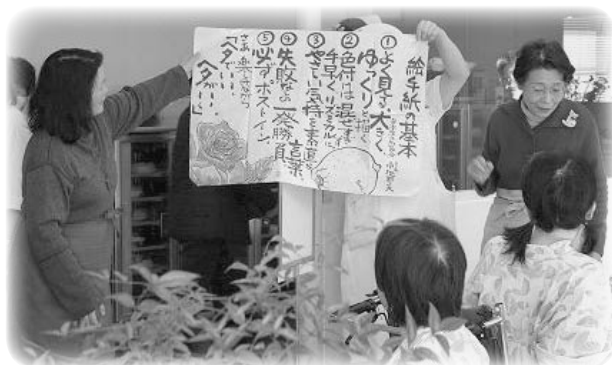 絵手紙の基本
①よく見る。大きく、
ゆっくりと描く
②色付は混ぜず
手早くリズミカルに
③やさしい気持を素直な言葉
④失敗なし一発勝負
⑤必ずポストイン。
さあ楽しみながら
「ヘタでいい、
ヘタがいい。」